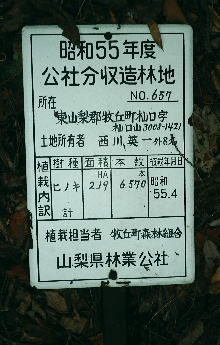 昭和55年度
公社分収造林地
NO.657
所在
東山梨郡牧丘町杣口字
杣口山3003-1421
土地所有者 西川英一外8名
植栽内訳
樹種 面積 本数 植栽年月日
HA 本
ヒノキ 2.19 6.570 昭和
55.4
計
植栽担当者 牧丘町森林組合
山梨県林業公社